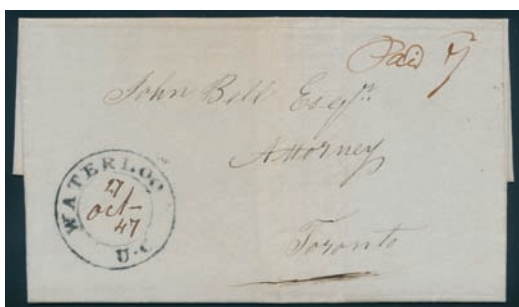 Paid 7
John Bell Esqr.
Attorney
Toronto
WATERLOO
27
oct-
47
U.C